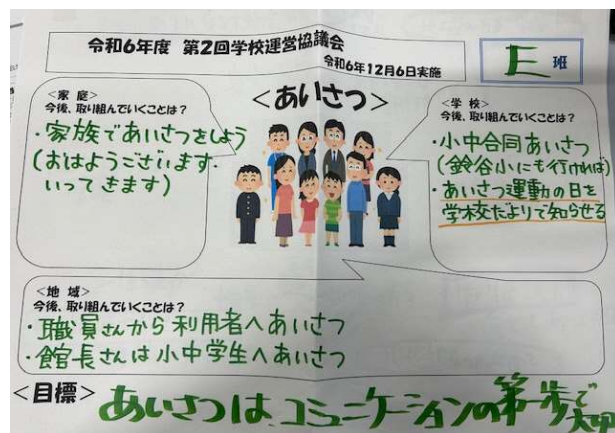 令和6年度 第2回学校運営協議会
令和6年12月6日実施
E 班
<家 庭>
今後、取り組んでいくことは?
・家族であいさつをしよう
(おはようございます・
いってきます)
<あいさつ>
<学 校>
今後、取り組んでいくことは?
・小中合同あいさつ
(鈴谷小にも行ければ)
・あいさつ運動の日を
学校だよりで知らせる
<地 域>
今後、取り組んでいくことは?
・職員さんから利用者へあいさつ
・館長さんは小中学生へあいさつ
<目標> あいさつは、コミュニケーションの第一歩で
大切